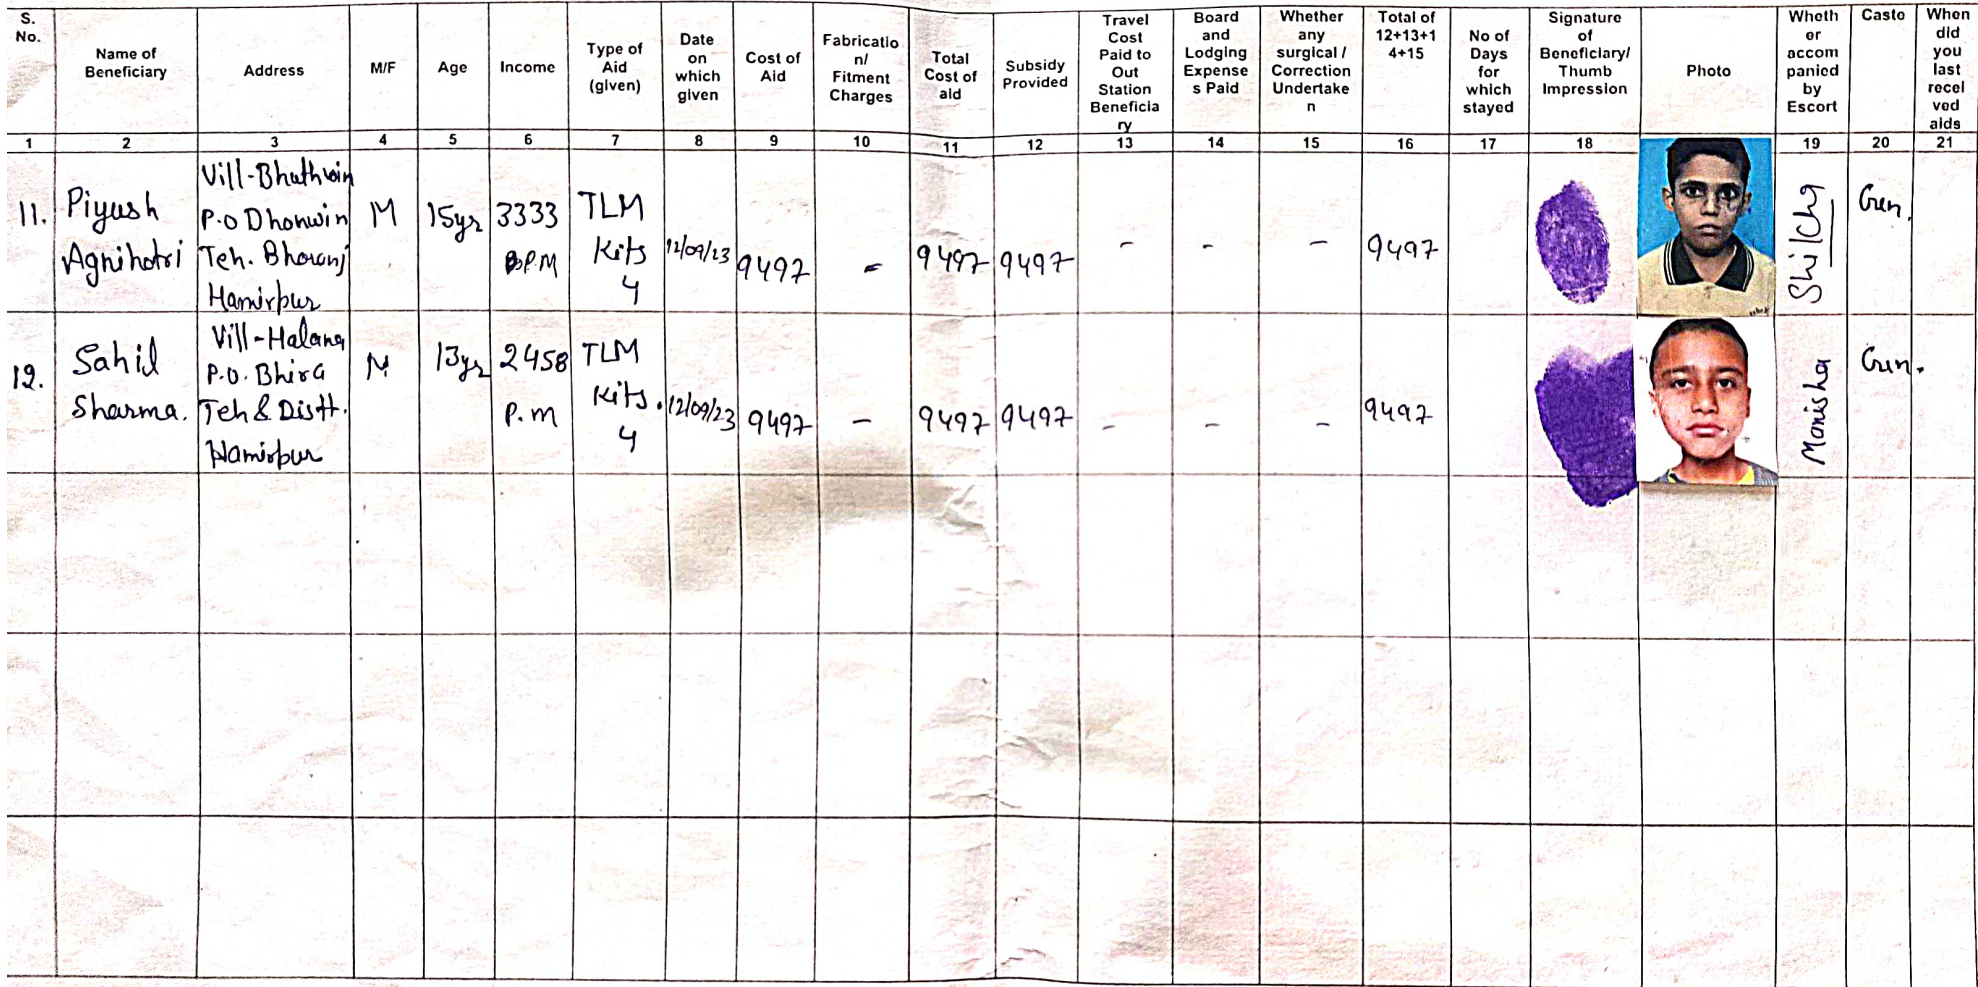 S. No.
Name of Beneficiary
Address
M/F
Age
Income
Type of Aid (given)
Date on which given
Cost of Aid
Fabricatio n/ Fitment Charges
Total Cost of aid
Subsidy Provided
Travel Cost Paid to Out Station Beneficia ry
Board and Lodging Expense s Paid
Whether any surgical / Correction Undertake n
Total of 12+13+1 4+15
No of Days for which stayed
Signature of Beneficiary/ Thumb Impression
Photo
Wheth er accom panied by Escort
Caste
When did you last recei ved aids
1 2 3 4 5 6 7 8 9 10 11 12 13 14 15 16 17 18 19 20 21
11.
Piyush
Agnihotri
Vill-Bhuthwin
P.O Dhonwin
Teh. Bhoranj
Hamirpur
M
15yr
3333
P.M
TLM
Kits
4
12/09/23
9497
-
9497
9497
-
-
-
9497
Gen.
12.
Sahil
Sharma.
Vill-Halana
P.O. Bhira
Teh & Distt.
Hamirpur
M
13yr
2458
P.m
TLM
Kits.
4
12/09/23
9497
-
9497
9497
-
-
-
9497
Manisha
Gen.